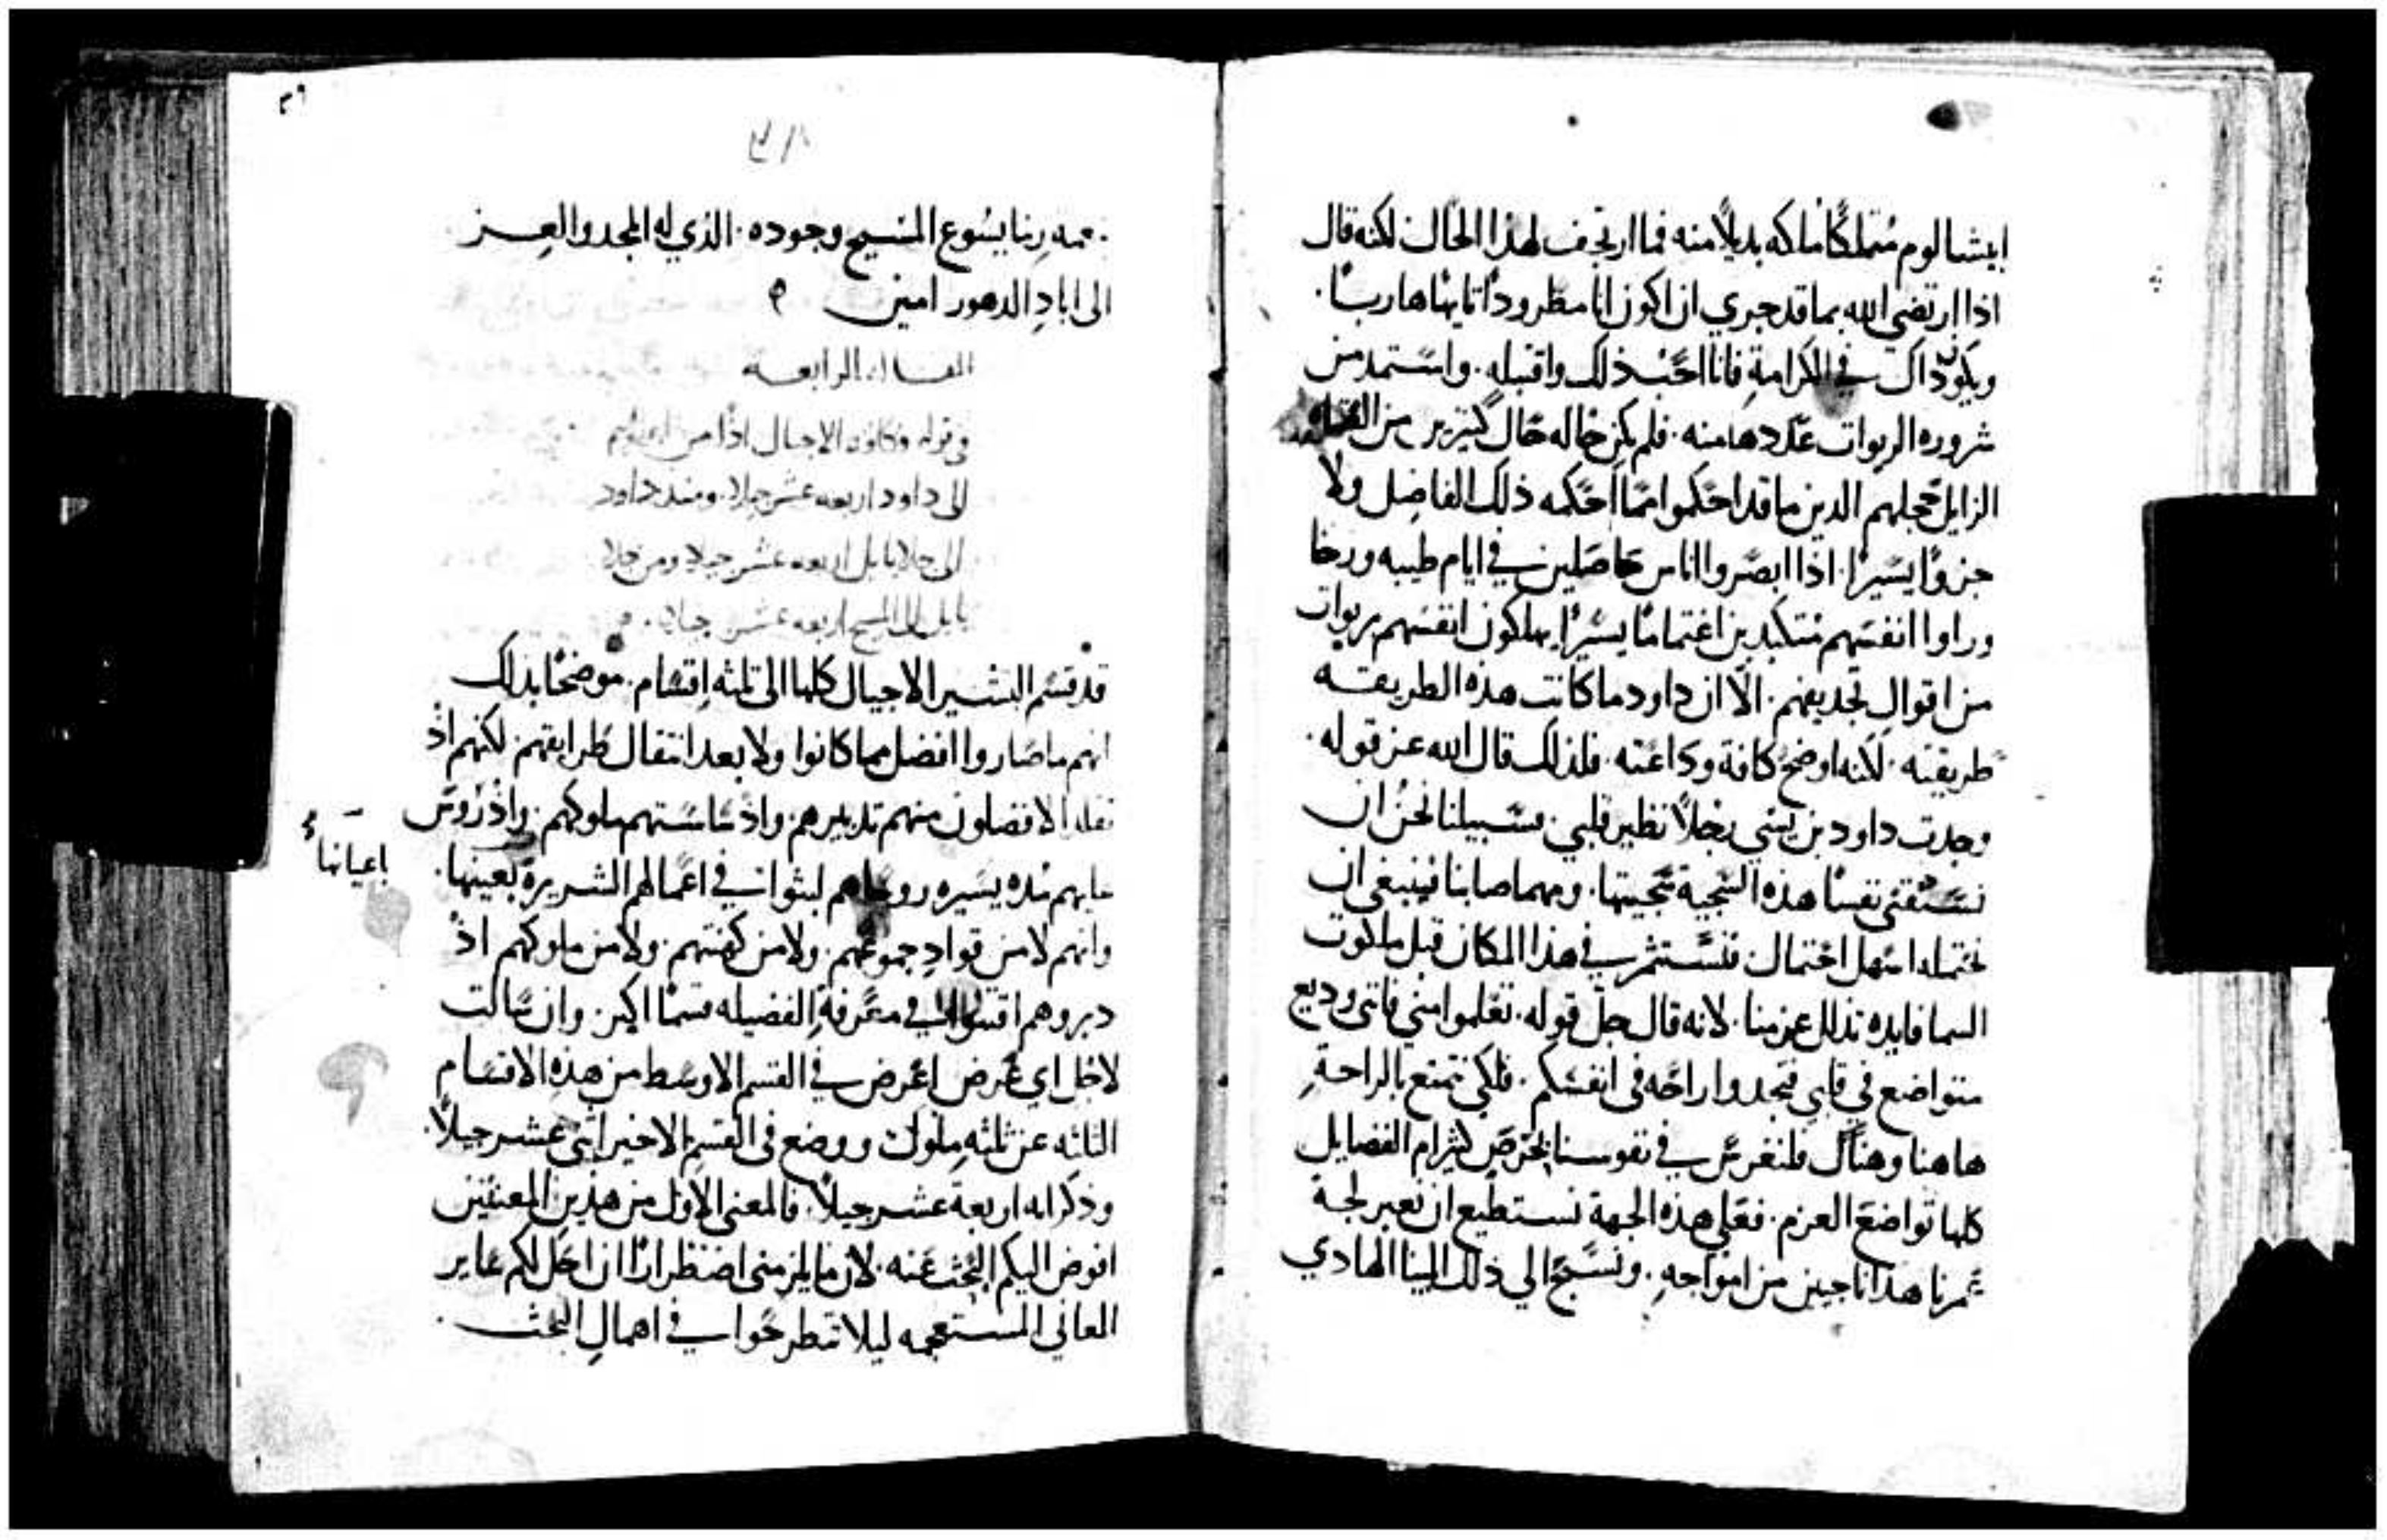 ابيشالوم متملكًا ملكه بديلًا منه فما ارتجف لهذا الحال لكنه قال
اذا ارتضي الله بما قد جري ان اكون انا مطرودًا تايهًا هاربًا.
ويكون ذاك في الكرامة فانا احب ذلك واقبله. واستمد من
شروره الربوات عددها منه. فلم يكن حاله حال كثيرين من
الزايل خجلهم الدين ما قد احكموا مما احكمه ذلك الفاضل ولا
جزوًا يسيرًا. اذا ابصروا اناس حاصلين في ايام طيبه ورخا
وراوا انفسهم متكبدين اغتمامًا يسيرًا يهلكون انفسهم بربوات
من اقوال تجديفهم. الّا ان داود ما كانت هذه الطريقه
طريقته. لكنه اوضح كافة وداعته. فلذلك قال الله عز قوله.
وجدت داود بن يسي رجلًا نظير قلبي. فسبيلنا نحن ان
نستقني نفسًا هذه السجية سجيتها. ومهما اصابنا فينبغي ان
نحتمله اسهل احتمال فنستثمر في هذا المكان قبل ملكوت
السما فايده تذلل عزمنا. لانه قال جل قوله. تعلموا مني فاني وديع
متواضع في قلبي فتجدوا راحه في انفسكم. فلكي نتمتع بالراحة
هاهنا وهناك فلنغرس في نفوسنا بحرص كثير ام الفضايل
كلها تواضع العزم. فعلي هذه الجهة نستطيع ان نعبر لجة
عمرنا هذا ناجين من امواجه. ونسبح الي ذلك المينا الهادي
٢٦
بنعمه ربنا يسوع المسيح وجوده. الذي له المجد والعز
الى اباد الدهور امين
المقاله الرابعة
في قوله فكافه الاجيال اذًا من ابراهيم
الى داود اربعه عشر جيلا. ومنذ داود
الى جلا بابل اربعه عشر جيلا ومن جلا
بابل الى المسيح اربعه عشر جيلا.
قد قسم البشير الاجيال كلها الى ثلثه اقسام. موضحًا بذلك
انهم ما صاروا افضل مما كانوا ولا بعد انتقال طرايقهم. لكنهم اذ
تقلد الافضلون منهم تدبيرهم. واذ ساستهم ملوكهم. واذ روس
عليهم مده يسيره روساهم لبثوا في اعمالهم الشريرة بعينها.
باعيانها
وانهم لا من قواد جموعهم. ولا من كهنتهم. ولا من ملوكهم اذ
دبروهم اقتنوا في معرفة الفضيله قسمًا اكبر. وان سالت
لاجل اي غرض اعرض في القسم الاوسط من هذه الاقسام
الثلثه عن ثلثه ملوك ووضع في القسم الاخير اثني عشر جيلًا.
وذكر انه اربعة عشر جيلًا. فالمعنى الاول من هذين المعنيين
افوض اليكم البحث عنه. لان ما يلزمني اضطرارًا ان احل لكم ساير
المعاني المستعجمه ليلا تنطرحوا في اهمال البحث.